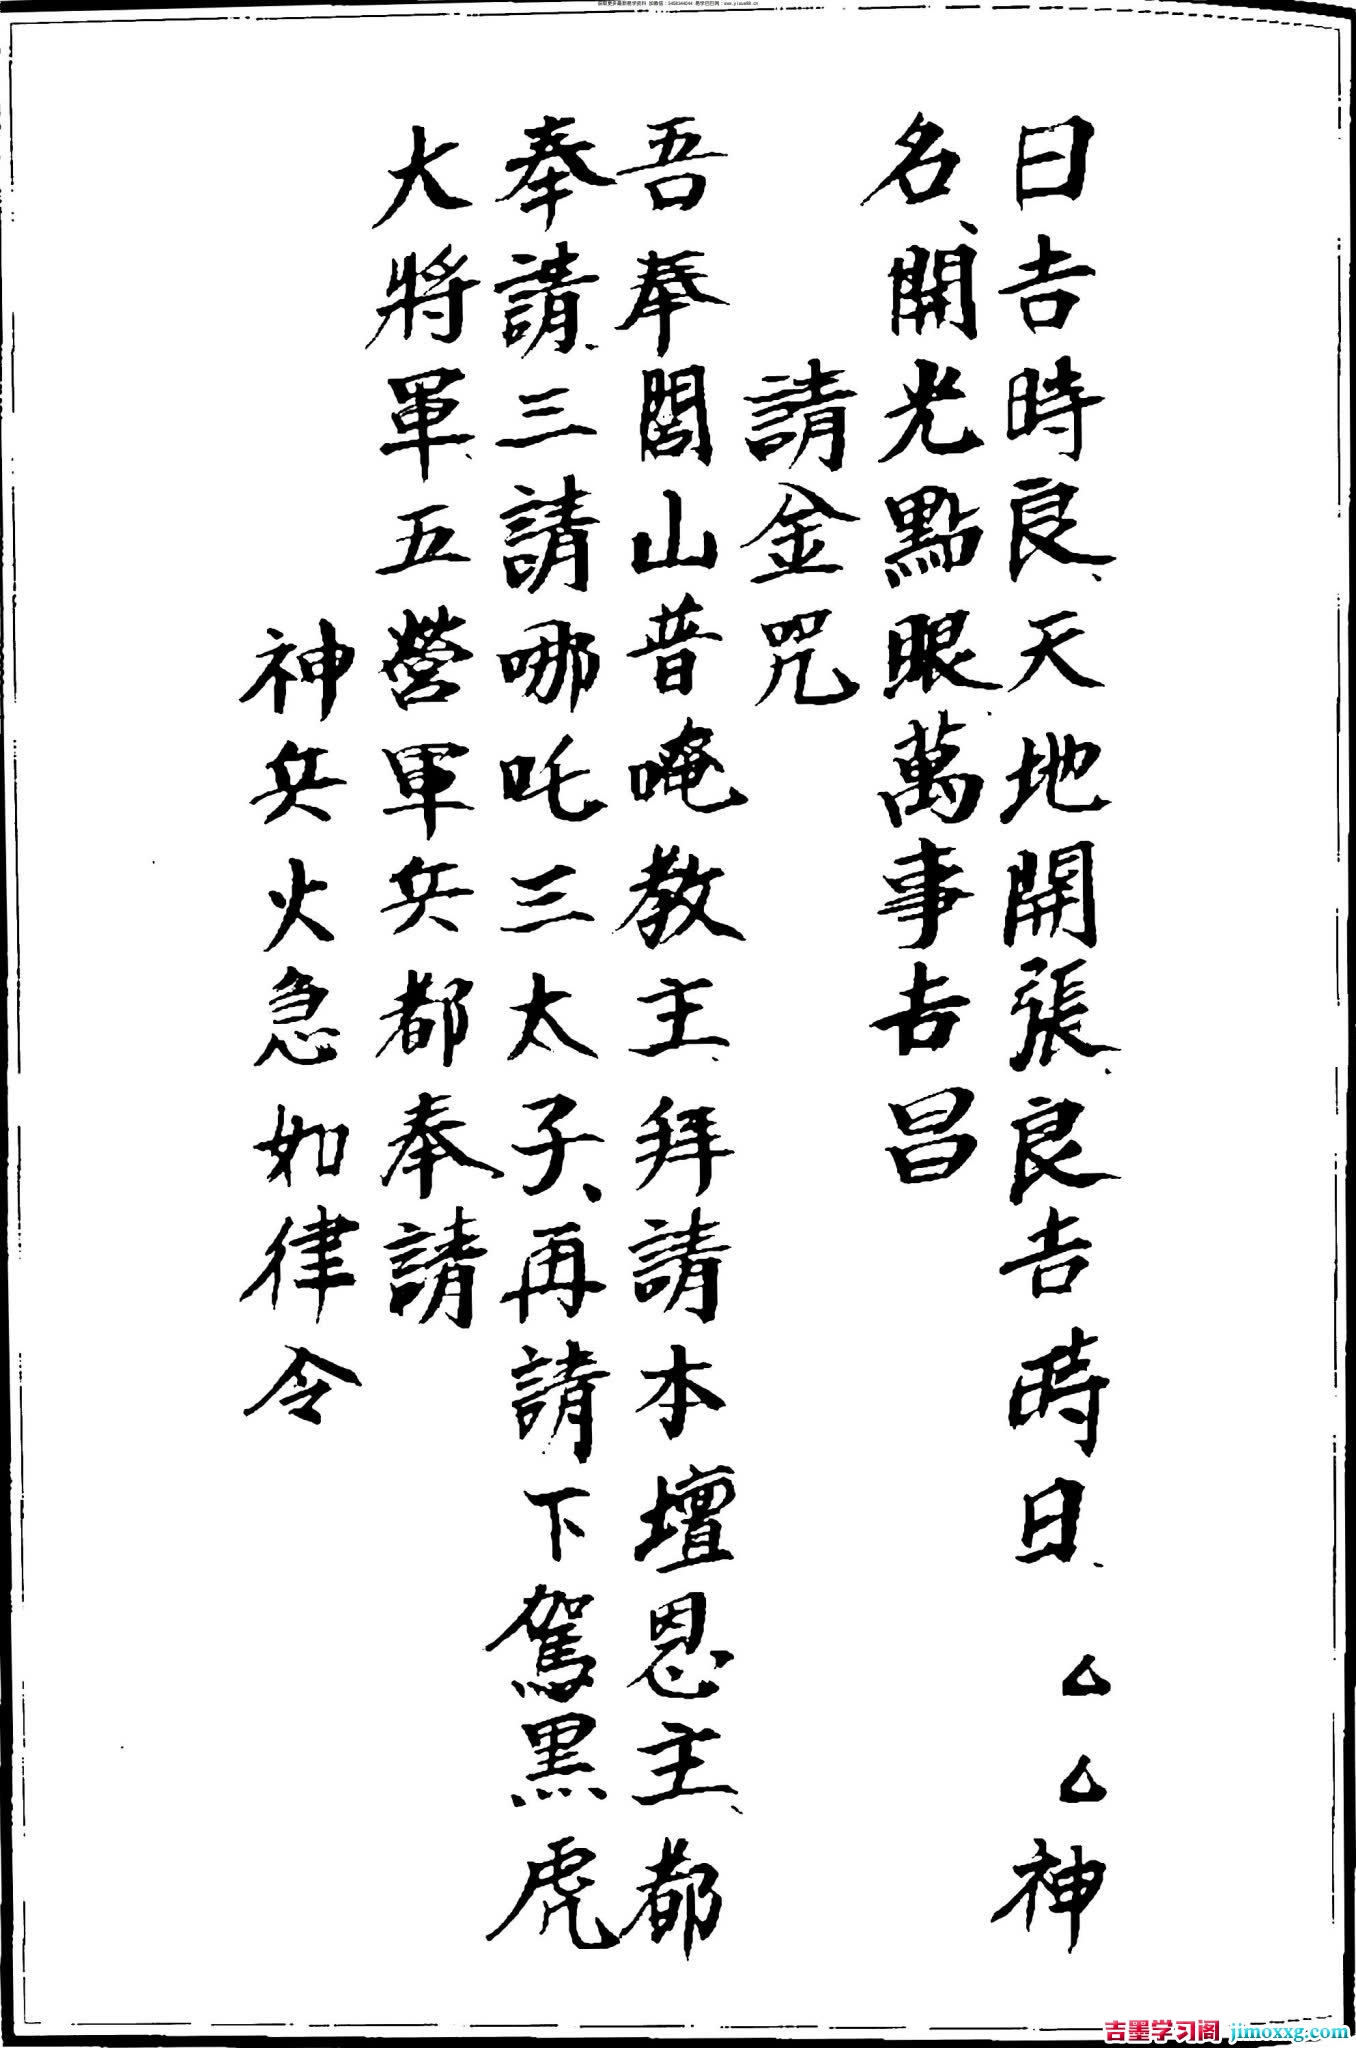 日吉時良、天地開張、良吉時日、△△神
名、開光點眼、萬事吉昌
請金咒
吾奉閭山普唵教主、拜請本壇恩主、都
奉請、三請哪吒三太子、再請下駕黑虎
大將軍、五營軍兵都奉請
神兵火急如律令
吉墨学习阁 jimoxxg.com